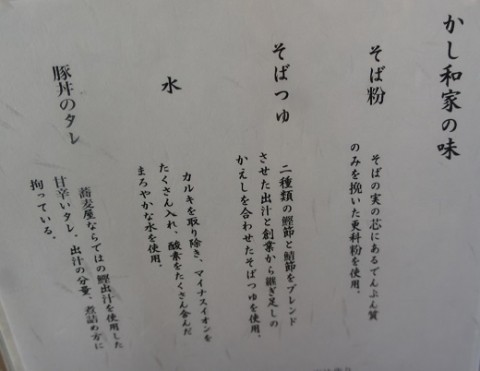 かし和家の味
そば粉
そばの実の芯にあるでんぷん質
のみを挽いた更科粉を使用。
そばつゆ
二種類の鰹節と鯖節をブレンド
させた出汁と創業から継ぎ足しの
かえしを合わせたそばつゆを使用。
水
カルキを取り除き、マイナスイオンを
たくさん入れ、酸素をたくさん含んだ
まろやかな水を使用。
豚丼のタレ
蕎麦屋ならではの鰹出汁を使用した
甘辛いタレ、出汁の分量、煮詰め方に
拘っている。